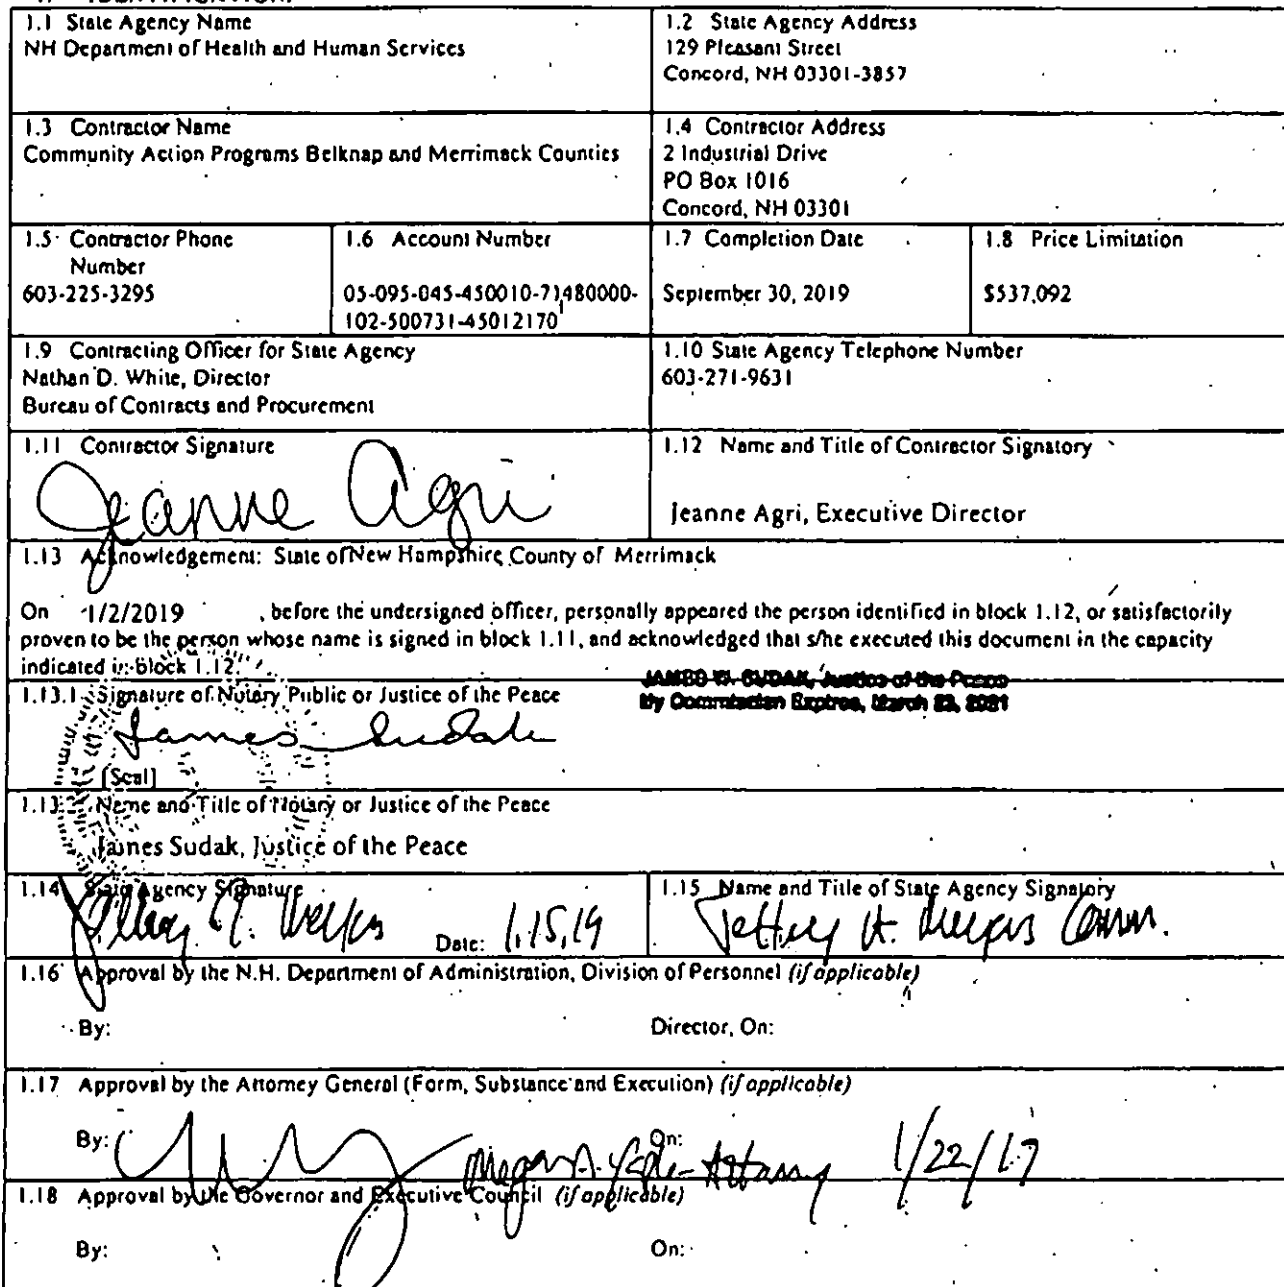 1.1 State Agency Name
NH Department of Health and Human Services
1.2 State Agency Address
129 Pleasant Street
Concord, NH 03301-3857
1.3 Contractor Name
Community Action Programs Belknap and Merrimack Counties
1.4 Contractor Address
2 Industrial Drive
PO Box 1016
Concord, NH 03301
1.5 Contractor Phone
Number
603-225-3295
1.6 Account Number
05-095-045-450010-71480000-
102-500731-45012170
1.7 Completion Date
September 30, 2019
1.8 Price Limitation
$537,092
1.9 Contracting Officer for State Agency
Nathan D. White, Director
Bureau of Contracts and Procurement
1.10 State Agency Telephone Number
603-271-9631
1.11 Contractor Signature
Jeanne Agri
1.12 Name and Title of Contractor Signatory
Jeanne Agri, Executive Director
1.13 Acknowledgement: State of New Hampshire County of Merrimack
On 1/2/2019 , before the undersigned officer, personally appeared the person identified in block 1.12, or satisfactorily
proven to be the person whose name is signed in block 1.11, and acknowledged that s/he executed this document in the capacity
indicated in block 1.12.
JAMES W. SUDAK, Justice of the Peace
My Commission Expires, March 23, 2021
1.13.1 Signature of Notary Public or Justice of the Peace
James Sudak
[Seal]
1.13.2 Name and Title of Notary or Justice of the Peace
James Sudak, Justice of the Peace
1.14 State Agency Signature
Date: 1.15.19
1.15 Name and Title of State Agency Signatory
Jeffrey A. Meyers Comm.
1.16 Approval by the N.H. Department of Administration, Division of Personnel (if applicable)
By: Director, On:
1.17 Approval by the Attorney General (Form, Substance and Execution) (if applicable)
By: On: 1/22/19
1.18 Approval by the Governor and Executive Council (if applicable)
By: On: